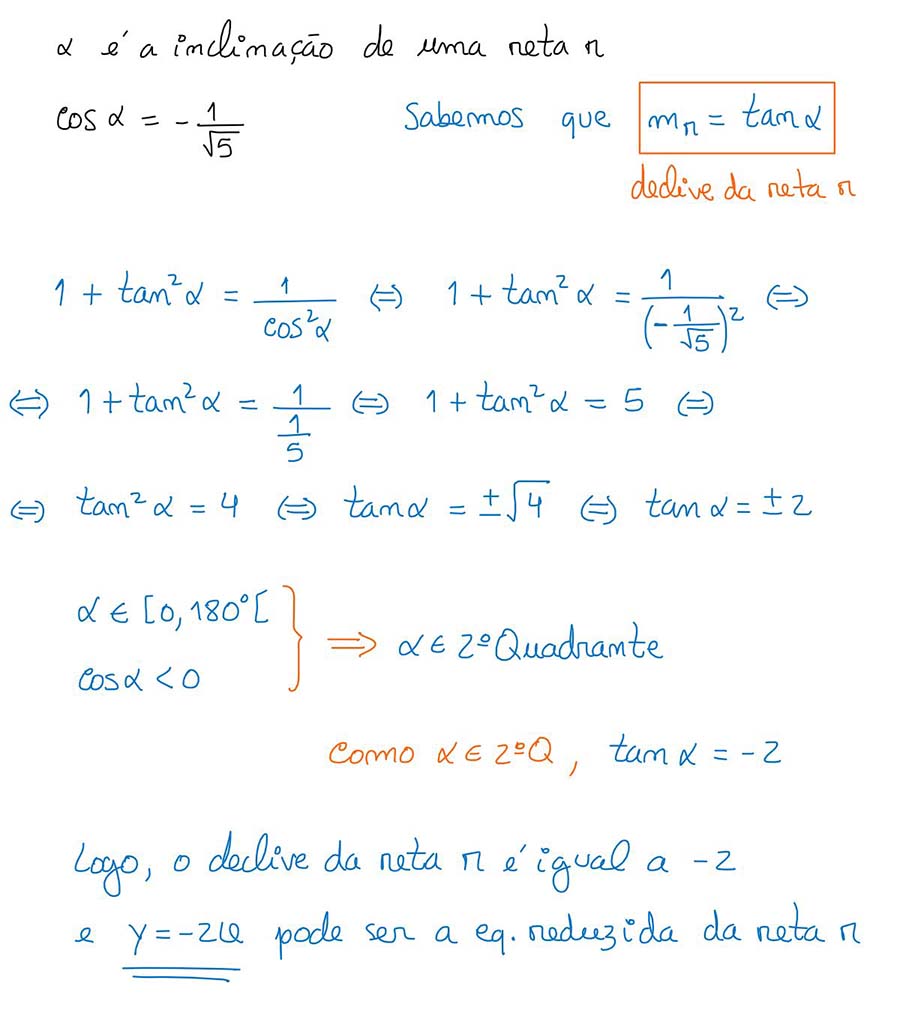 α é a inclinação de uma reta r
cos α = -1/√5 Sabemos que m_r = tan α
declive da reta r
1 + tan²α = 1/cos²α ⇔ 1 + tan²α = 1/(-1/√5)² ⇔
⇔ 1 + tan²α = 1/(1/5) ⇔ 1 + tan²α = 5 ⇔
⇔ tan²α = 4 ⇔ tan α = ±√4 ⇔ tan α = ±2
α ∈ [0, 180°[
cos α < 0 } ⇒ α ∈ 2º Quadrante
Como α ∈ 2ºQ, tan α = -2
Logo, o declive da reta r é igual a -2
e y = -2x pode ser a eq. reduzida da reta r